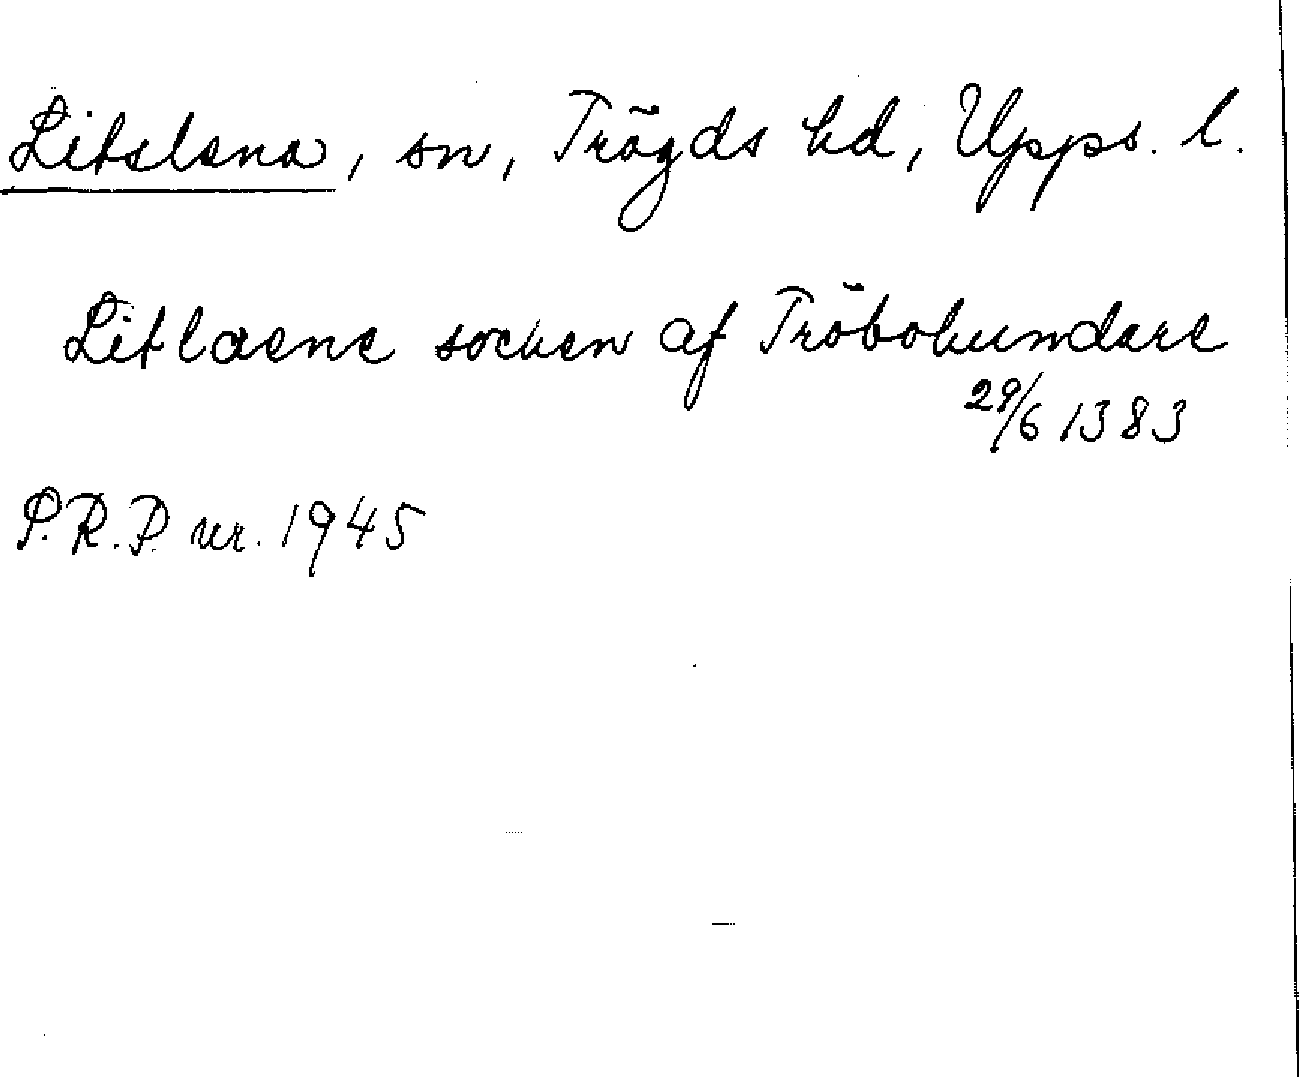 Litslena, sn, Trögds hd, Upps. l.
Litlæne socken af Tröbohundare
29/6 1383
P.R.P. nr. 1945